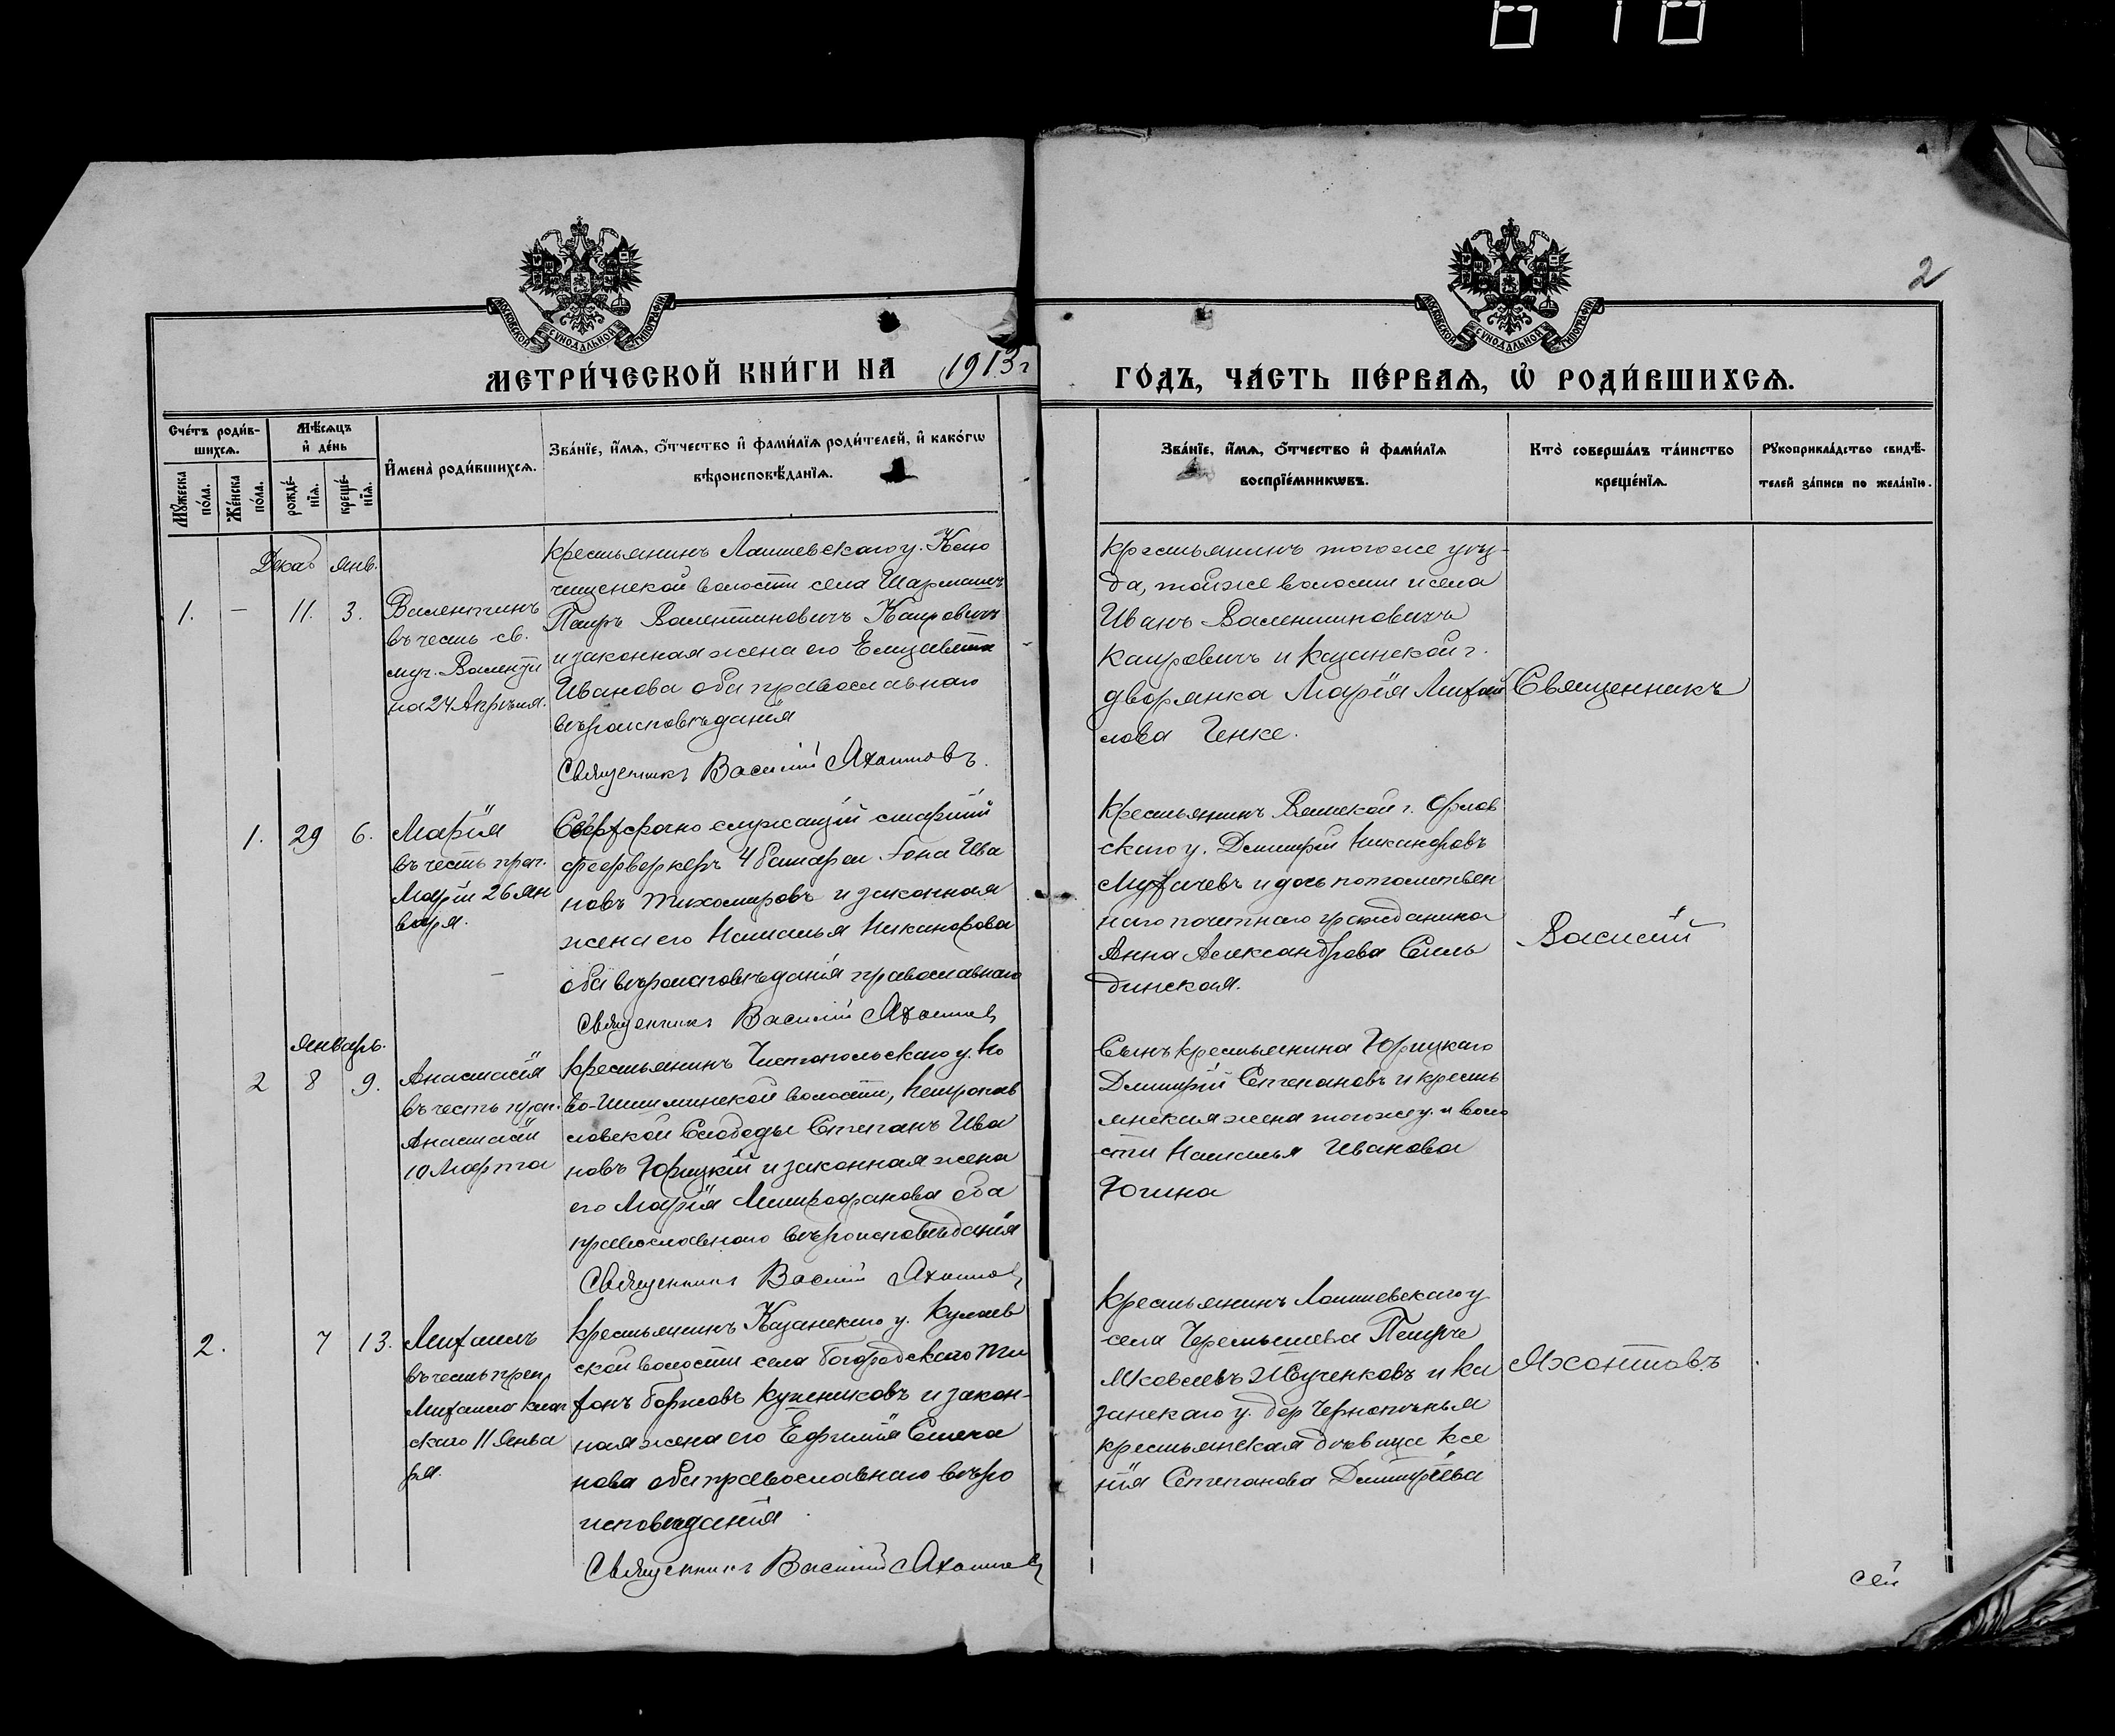 2
МОСКОВСКОЙ СѴНОДАЛЬНОЙ ТИПОГРАФІИ
МОСКОВСКОЙ СѴНОДАЛЬНОЙ ТИПОГРАФІИ
МЕТРИ́ЧЕСКОЙ КНИ́ГИ НА 1913 г
ГО́ДЪ, ЧА́СТЬ ПЕ́РВАѦ, Ѡ҆ РОДИ́ВШИХСѦ.
Сче́тъ роди́в-
шихсѧ.
Мѣ́сѧцъ
и҆ де́нь
Мꙋ́жеска
по́ла.
Же́нска
по́ла.
рожде́-
нїѧ.
креще́-
нїѧ.
И҆мена̀ роди́вшихсѧ.
Зва́нїе, и҆́мѧ, ѻ҆́тчество и҆ фами́лїѧ роди́телей, и҆ како́гѡ
вѣроисповѣ́данїѧ.
Зва́нїе, и҆́мѧ, ѻ҆́тчество и҆ фами́лїѧ
воспрїе́мникѡвъ.
Кто̀ соверша́лъ та́инство
креще́нїѧ.
Рꙋкоприкла́дство свидѣ́-
телей за́писи по жела́нїю.
Декаб янв.
1. — 11. 3.
Валентинъ
въ честь св.
муч. Валенти
на 24 Апрѣля.
Крестьянинъ Лаишевскаго у.
волости села
Валентиновичъ Каирович
и законная жена его Елизавета
Иванова оба православнаго
вѣроисповѣданія
Священникъ Василій Яхонтовъ.
Крестьянинъ того же уѣз-
да, той же волости и села
Иванъ Валентиновичъ
Каировичъ и Казанской г.
дворянка Марія Михай
лова Генке.
Священникъ
1. 29 6.
Марія
въ честь преп.
Маріи 26 Ян
варя.
Сверхсрочно служащій старшій
фейерверкеръ 4 батареи Іона Ива
новъ Тихомировъ и законная
жена его Наталья Никанорова
оба вѣроисповѣданія православнаго
Священникъ Василій Яхонтов
Крестьянинъ Вятской г. Орлов
скаго у. Димитрій Никандровъ
Мухачевъ и дочь потомствен
наго почетнаго гражданина
Анна Александрова Сель
динская.
Василій
Январь.
2 8 9.
Анастасія
въ честь преп.
Анастасіи
10 Марта
Крестьянинъ Чистопольскаго у. Но
во-Шешминской волости, Петропав
ловской Слободы Степанъ Ива
новъ Юрицкій и законная жена
его Марія Митрофанова оба
православнаго вѣроисповѣданія
Священникъ Василій Яхонтов
Сынъ крестьянина Юрицкаго
Димитрій Степановъ и кресть
янская жена того же у. и воло
сти Наталья Иванова
Югина
2. 7 13.
Михаилъ
въ честь преп.
Михаила Клоп
скаго 11 Янва
ря.
Крестьянинъ Казанскаго у. Кулаев
ской волости села Богородскаго Ти
хонъ Борисовъ и закон-
ная жена его Евфимія Степа
нова оба православнаго вѣро
исповѣданія
Священникъ Василій Яхонтов
Крестьянинъ Лаишевскаго у
села Черемышева
Яковлевъ и Ка
занскаго у. дер
крестьянская дѣвица Ксе
нія Степанова Димитріева
Яхонтовъ.